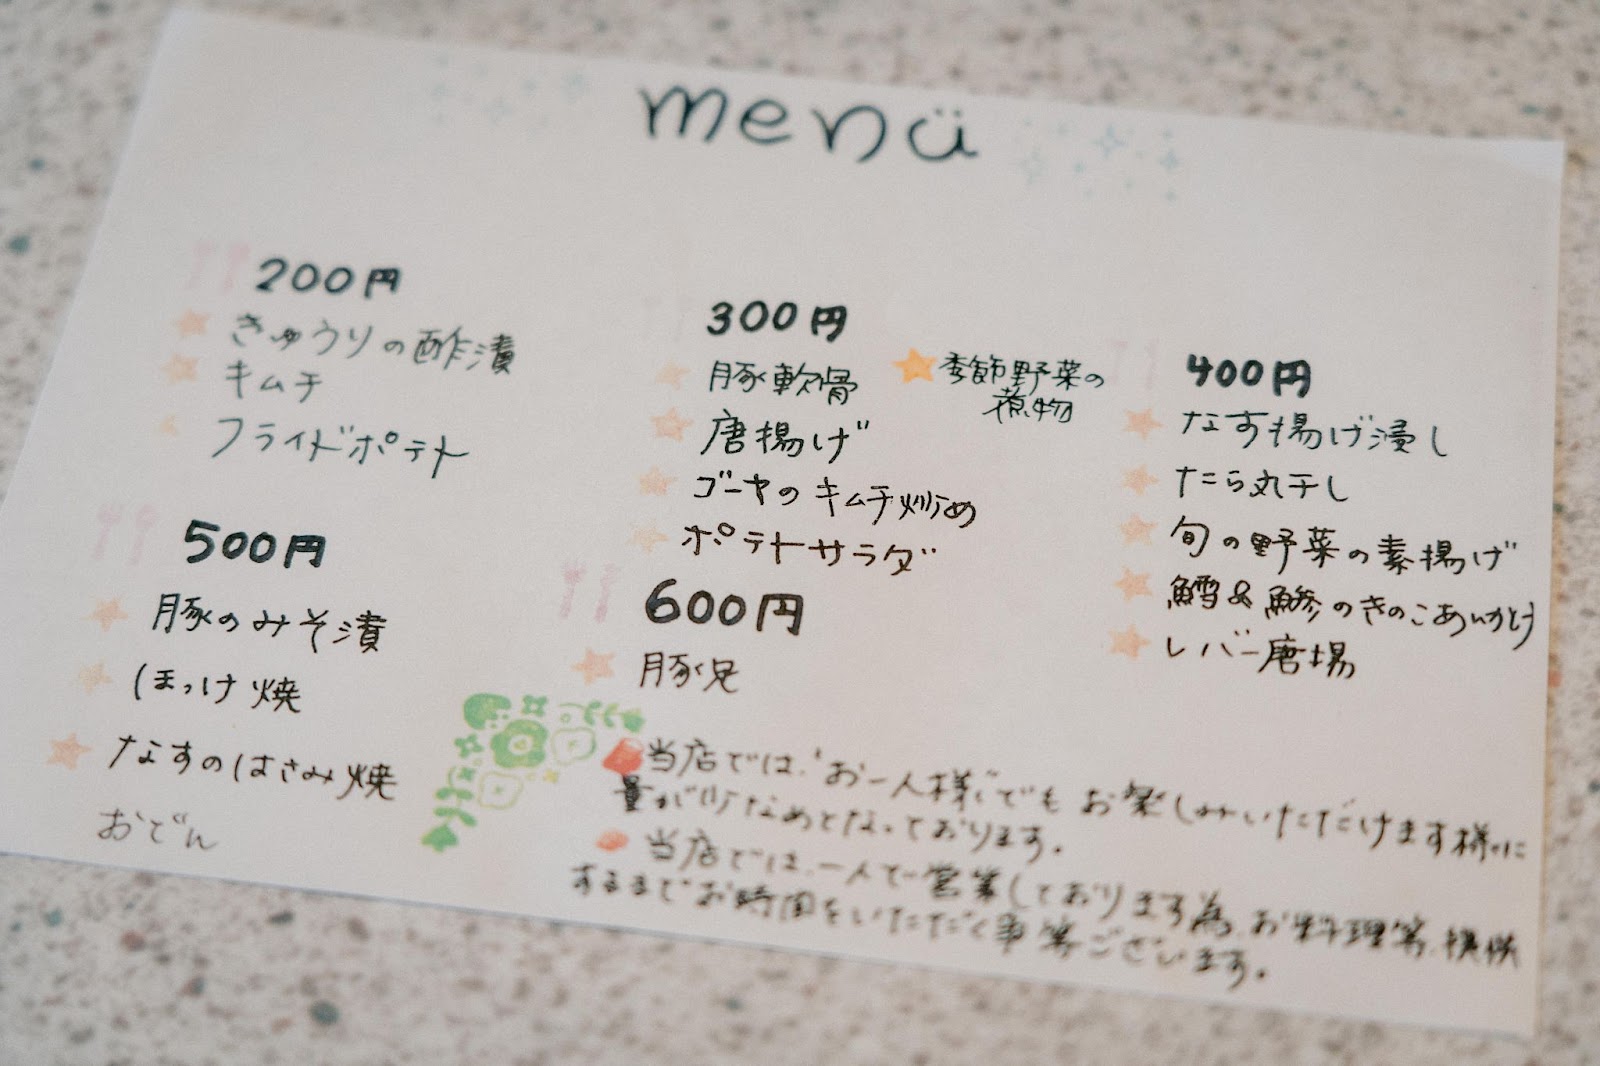 menü
200円
きゅうりの酢漬
キムチ
フライドポテト
300円
豚軟骨
唐揚げ
ゴーヤのキムチ炒め
ポテトサラダ
季節野菜の
煮物
400円
なす揚げ浸し
たら丸干し
旬の野菜の素揚げ
鱈&鯵のきのこあんかけ
レバー唐揚
500円
豚のみそ漬
ほっけ焼
なすのはさみ焼
おでん
600円
豚足
当店では、お一人様でもお楽しみいただけます様に
量が少なめとなっております。
当店では、一人で営業しております為、お料理等、提供
するまでお時間をいただく事等ございます。